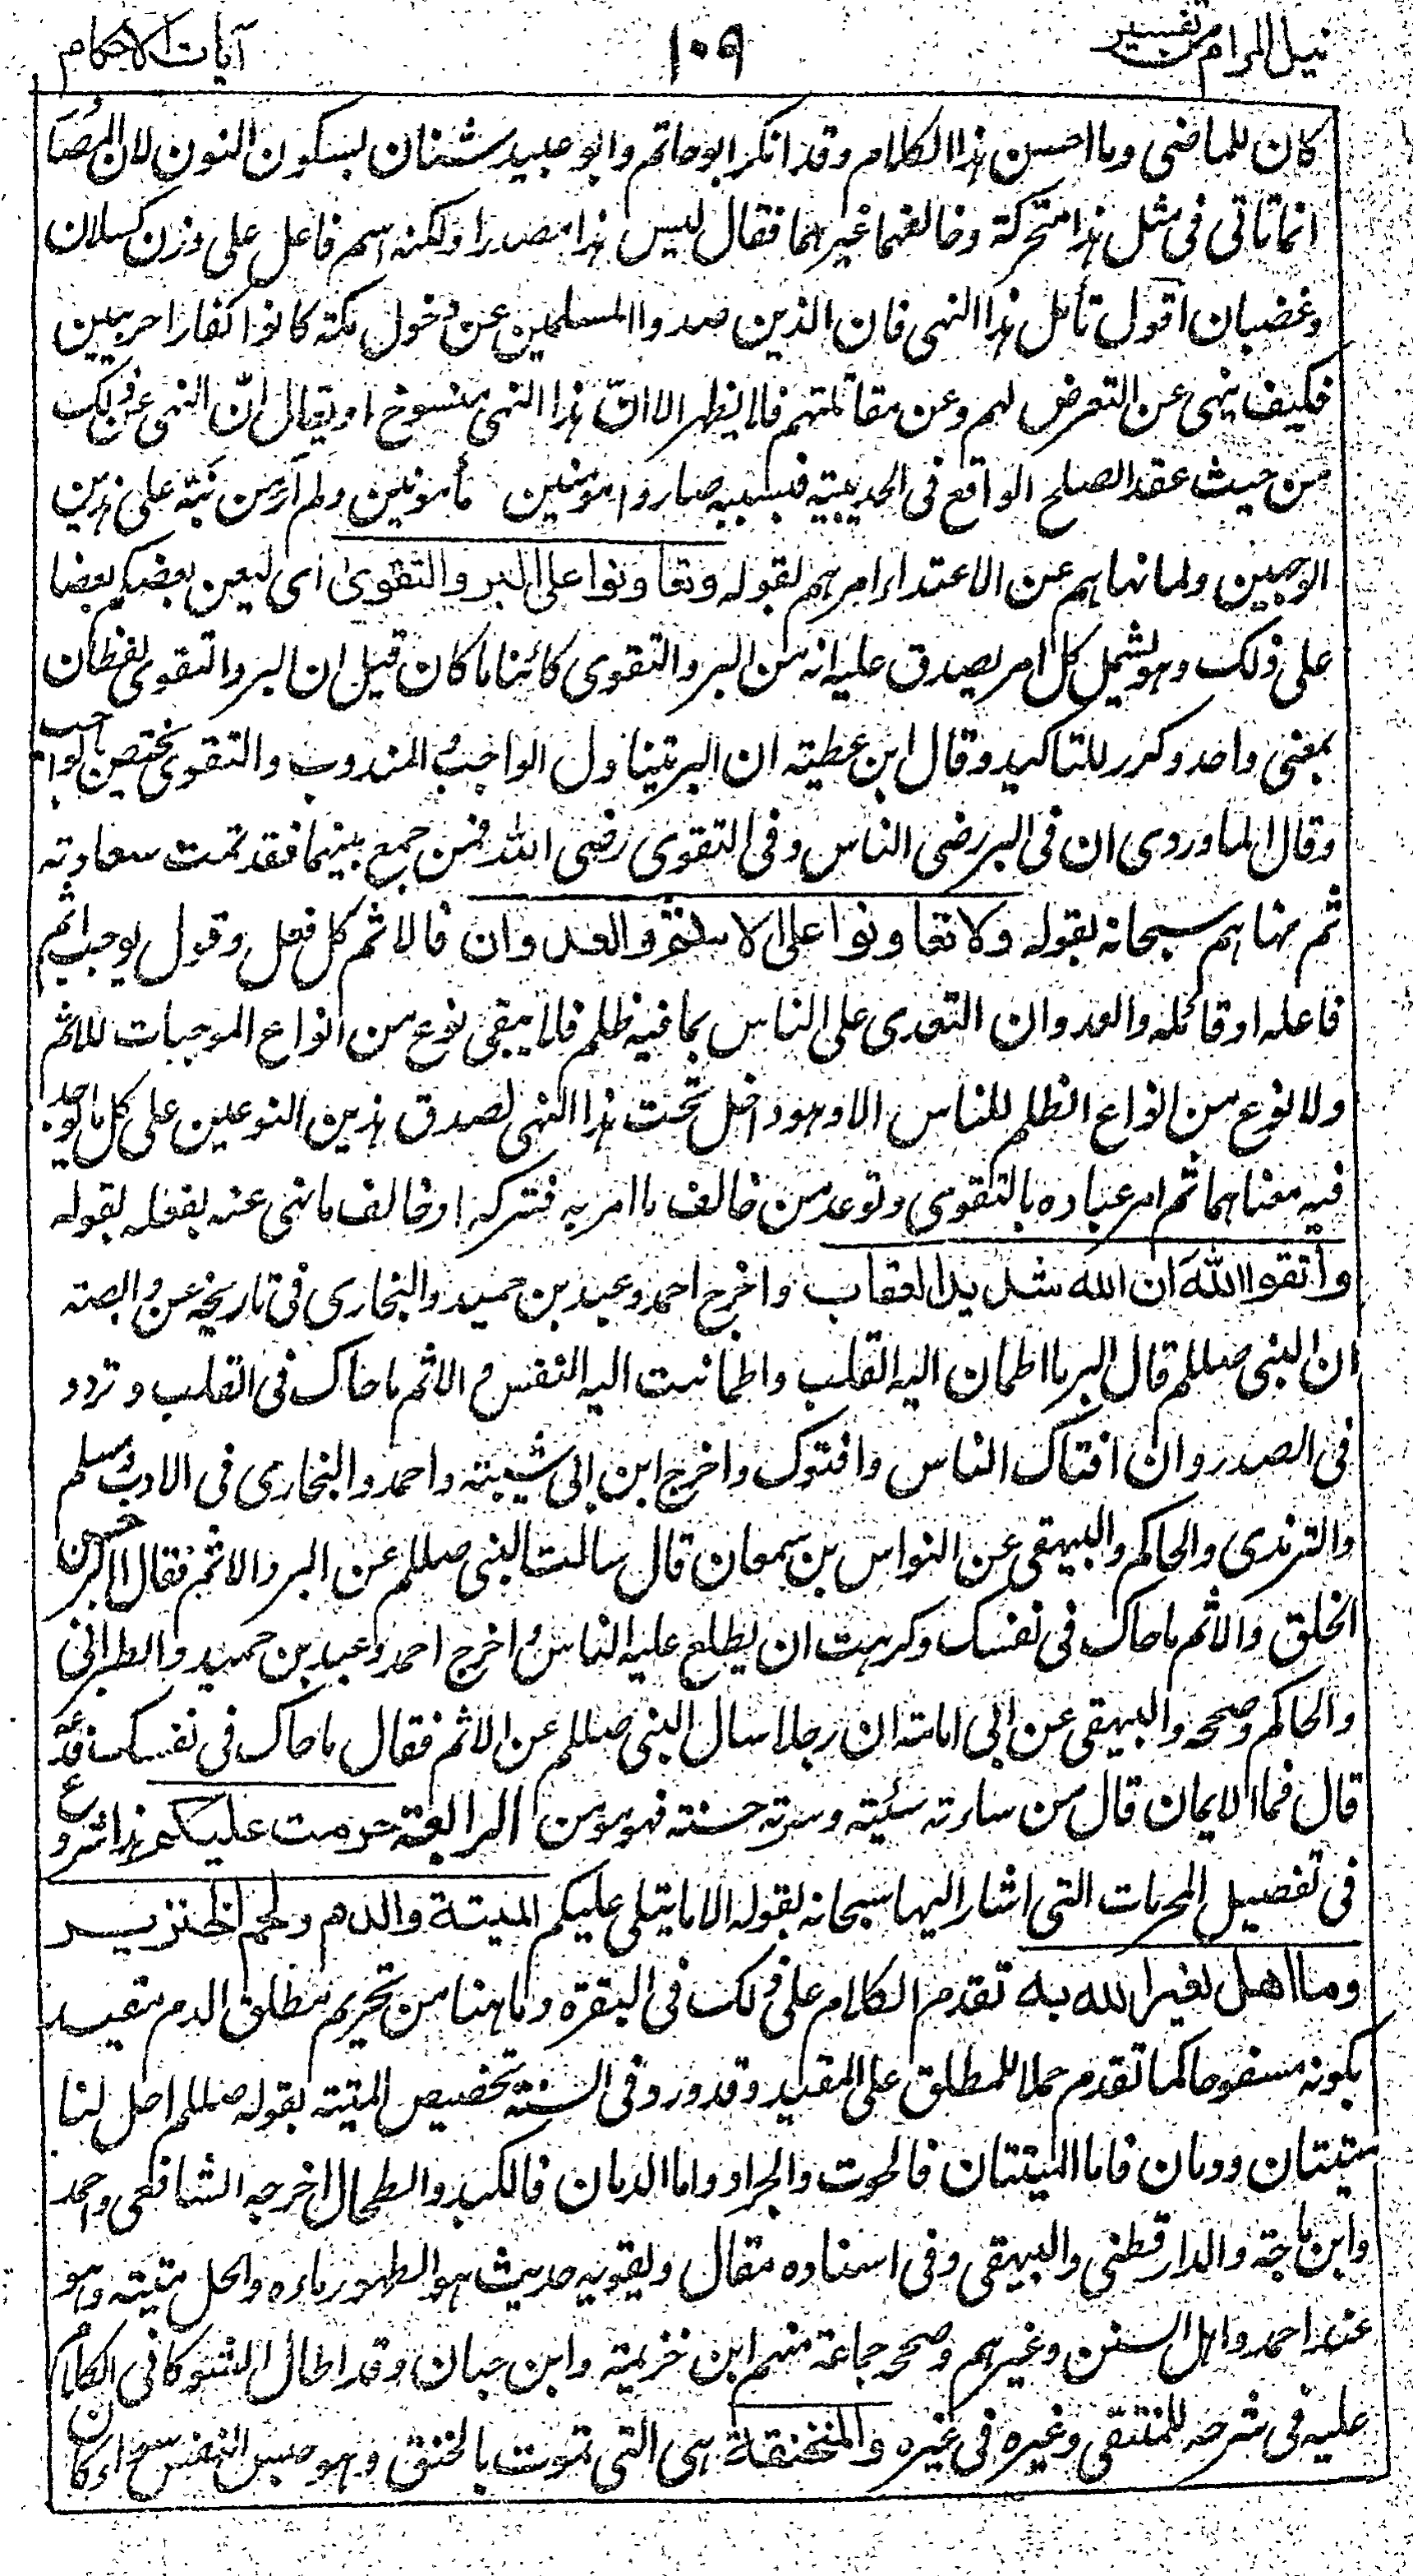 نيل المرام من تفسير ١٠٩ آيات الاحكام
كان للماضى وما احسن هذا الكلام وقد انكر ابو حاتم وابو عبيد شنئان بسكون النون لان المصا
انما تاتى فى مثل هذا متحركة وخالفهما غيرهما فقال ليس هذا مصدرا ولكنه اسم فاعل على وزن كسلان
وغضبان اقول تأمل هذا النهى فان الذين صدوا المسلمين عن دخول مكة كانوا كفارا حربيين
فكيف ينهى عن التعرض لهم وعن مقاتلتهم فلا يظهر الا انّ هذا النهى منسوخ او يقال انّ النهى عن ذلك
من حيث عقد الصلح الواقع فى الحديبية فبسببه صاروا مؤمنين مأمونين ولم أرَ من نبّه على هذين
الوجهين ولما نهاهم عن الاعتداء امرهم بقوله وتعاونوا على البر والتقوى اى ليعن بعضكم بعضا
على ذلك وهو يشمل كل امر يصدق عليه انه من البر والتقوى كائنا ما كان قيل ان البر والتقوى لفظان
بمعنى واحد وكرر للتاكيد وقال ابن عطية ان البر يتناول الواجب والمندوب والتقوى يختص بالواجب
وقال الماوردى ان فى البر رضى الناس وفى التقوى رضى الله فمن جمع بينهما فقد تمت سعادته
ثم نهاهم سبحانه بقوله ولا تعاونوا على الاثم والعدوان فالاثم كل فعل وقول يوجب اثم
فاعله او قائله والعدوان التعدى على الناس بما فيه ظلم فلا يبقى نوع من انواع الموجبات للاثم
ولا نوع من انواع الظلم للناس الا وهو داخل تحت هذا النهى لصدق هذين النوعين على كل ما يوجد
فيه معناهما ثم امر عباده بالتقوى وتوعد من خالف ما امر به فتركه او خالف ما نهى عنه بفعله بقوله
واتقوا الله ان الله شديد العقاب واخرج احمد وعبد بن حميد والبخارى فى تاريخه عن وابصة
ان النبى صللم قال البر ما اطمان اليه القلب واطمانت اليه النفس والاثم ما حاك فى القلب وتردد
فى الصدر وان افتاك الناس وافتوك واخرج ابن ابى شيبة واحمد والبخارى فى الادب ومسلم
والترمذى والحاكم والبيهقى عن النواس بن سمعان قال سالت النبى صللم عن البر والاثم فقال البر حسن
الخلق والاثم ما حاك فى نفسك وكرهت ان يطلع عليه الناس واخرج احمد وعبد بن حميد والطبرانى
والحاكم وصححه والبيهقى عن ابى امامة ان رجلا سال النبى صللم عن الاثم فقال ما حاك فى نفسك فدعه
قال فما الايمان قال من ساءته سيئته وسرته حسنته فهو مؤمن الرابعة حرمت عليكم هذا شروع
فى تفصيل المحرمات التى اشار اليها سبحانه بقوله الا ما يتلى عليكم الميتة والدم ولحم الخنزير
وما اهل لغير الله به تقدم الكلام على ذلك فى البقرة وما هنا من تحريم مطلق الدم مقيد
بكونه مسفوحا كما تقدم حملا للمطلق على المقيد وقد ورد فى السنة تخصيص الميتة بقوله صللم احل لنا
ميتتان ودمان فاما الميتتان فالحوت والجراد واما الدمان فالكبد والطحال اخرجه الشافعى واحمد
وابن ماجة والدارقطنى والبيهقى وفى اسناده مقال ويقويه حديث هو الطهور ماءه والحل ميتته وهو
عند احمد واهل السنن وغيرهم وصححه جماعة منهم ابن خزيمة وابن حبان وقد اطال الشوكانى الكلام
عليه فى شرحه للمنتقى وغيره فى غيره والمنخنقة هى التى تموت بالخنق وهو حبس النفس سواء كان